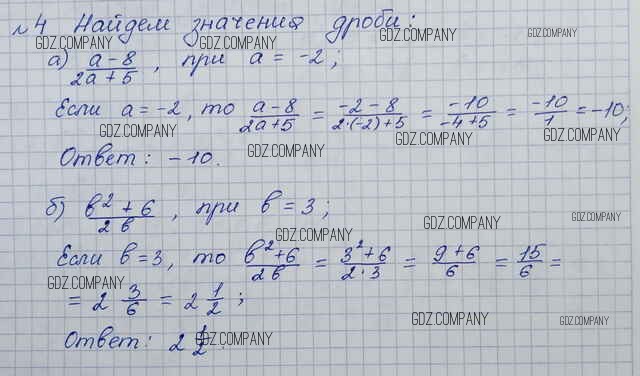 №4 Найдем значения дроби:
GDZ.COMPANY GDZ.COMPANY GDZ.COMPANY GDZ.COMPANY
а) (a-8)/(2a+5), при a = -2;
Если a = -2, то (a-8)/(2a+5) = (-2-8)/(2·(-2)+5) = (-10)/(-4+5) = (-10)/1 = -10;
GDZ.COMPANY GDZ.COMPANY GDZ.COMPANY
Ответ: -10.
GDZ.COMPANY
б) (b²+6)/(2b), при b = 3;
GDZ.COMPANY GDZ.COMPANY GDZ.COMPANY
Если b=3, то (b²+6)/(2b) = (3²+6)/(2·3) = (9+6)/6 = 15/6 =
GDZ.COMPANY
= 2 3/6 = 2 1/2;
GDZ.COMPANY GDZ.COMPANY
Ответ: 2 1/2.
GDZ.COMPANY